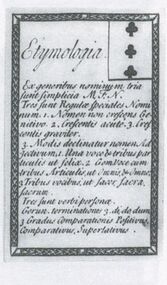 Etymologia.
Ex generibus nominum tria
sunt simplicia M. F. N.
Tres sunt Regulæ speciales Nomi
num. 1. Nomen non crescens Ge-
nitivo. 2. Crescentis acute. 3. Cres
centis gravitèr.
3. Modis declinatur nomen Ad
jectivum. 1. Una voce & tribus
ut felix. 2. Gemi
tribus Articulis, ut Omnis, & Omne.
3 Tribus vocibus, ut Sacer Sacra,
Sacrum.
Tres sunt verbi personæ.
Gerun: terminationes 3. di do dum
3 Gradus Comparationis Positivus,
Comparativus, Superlativus.